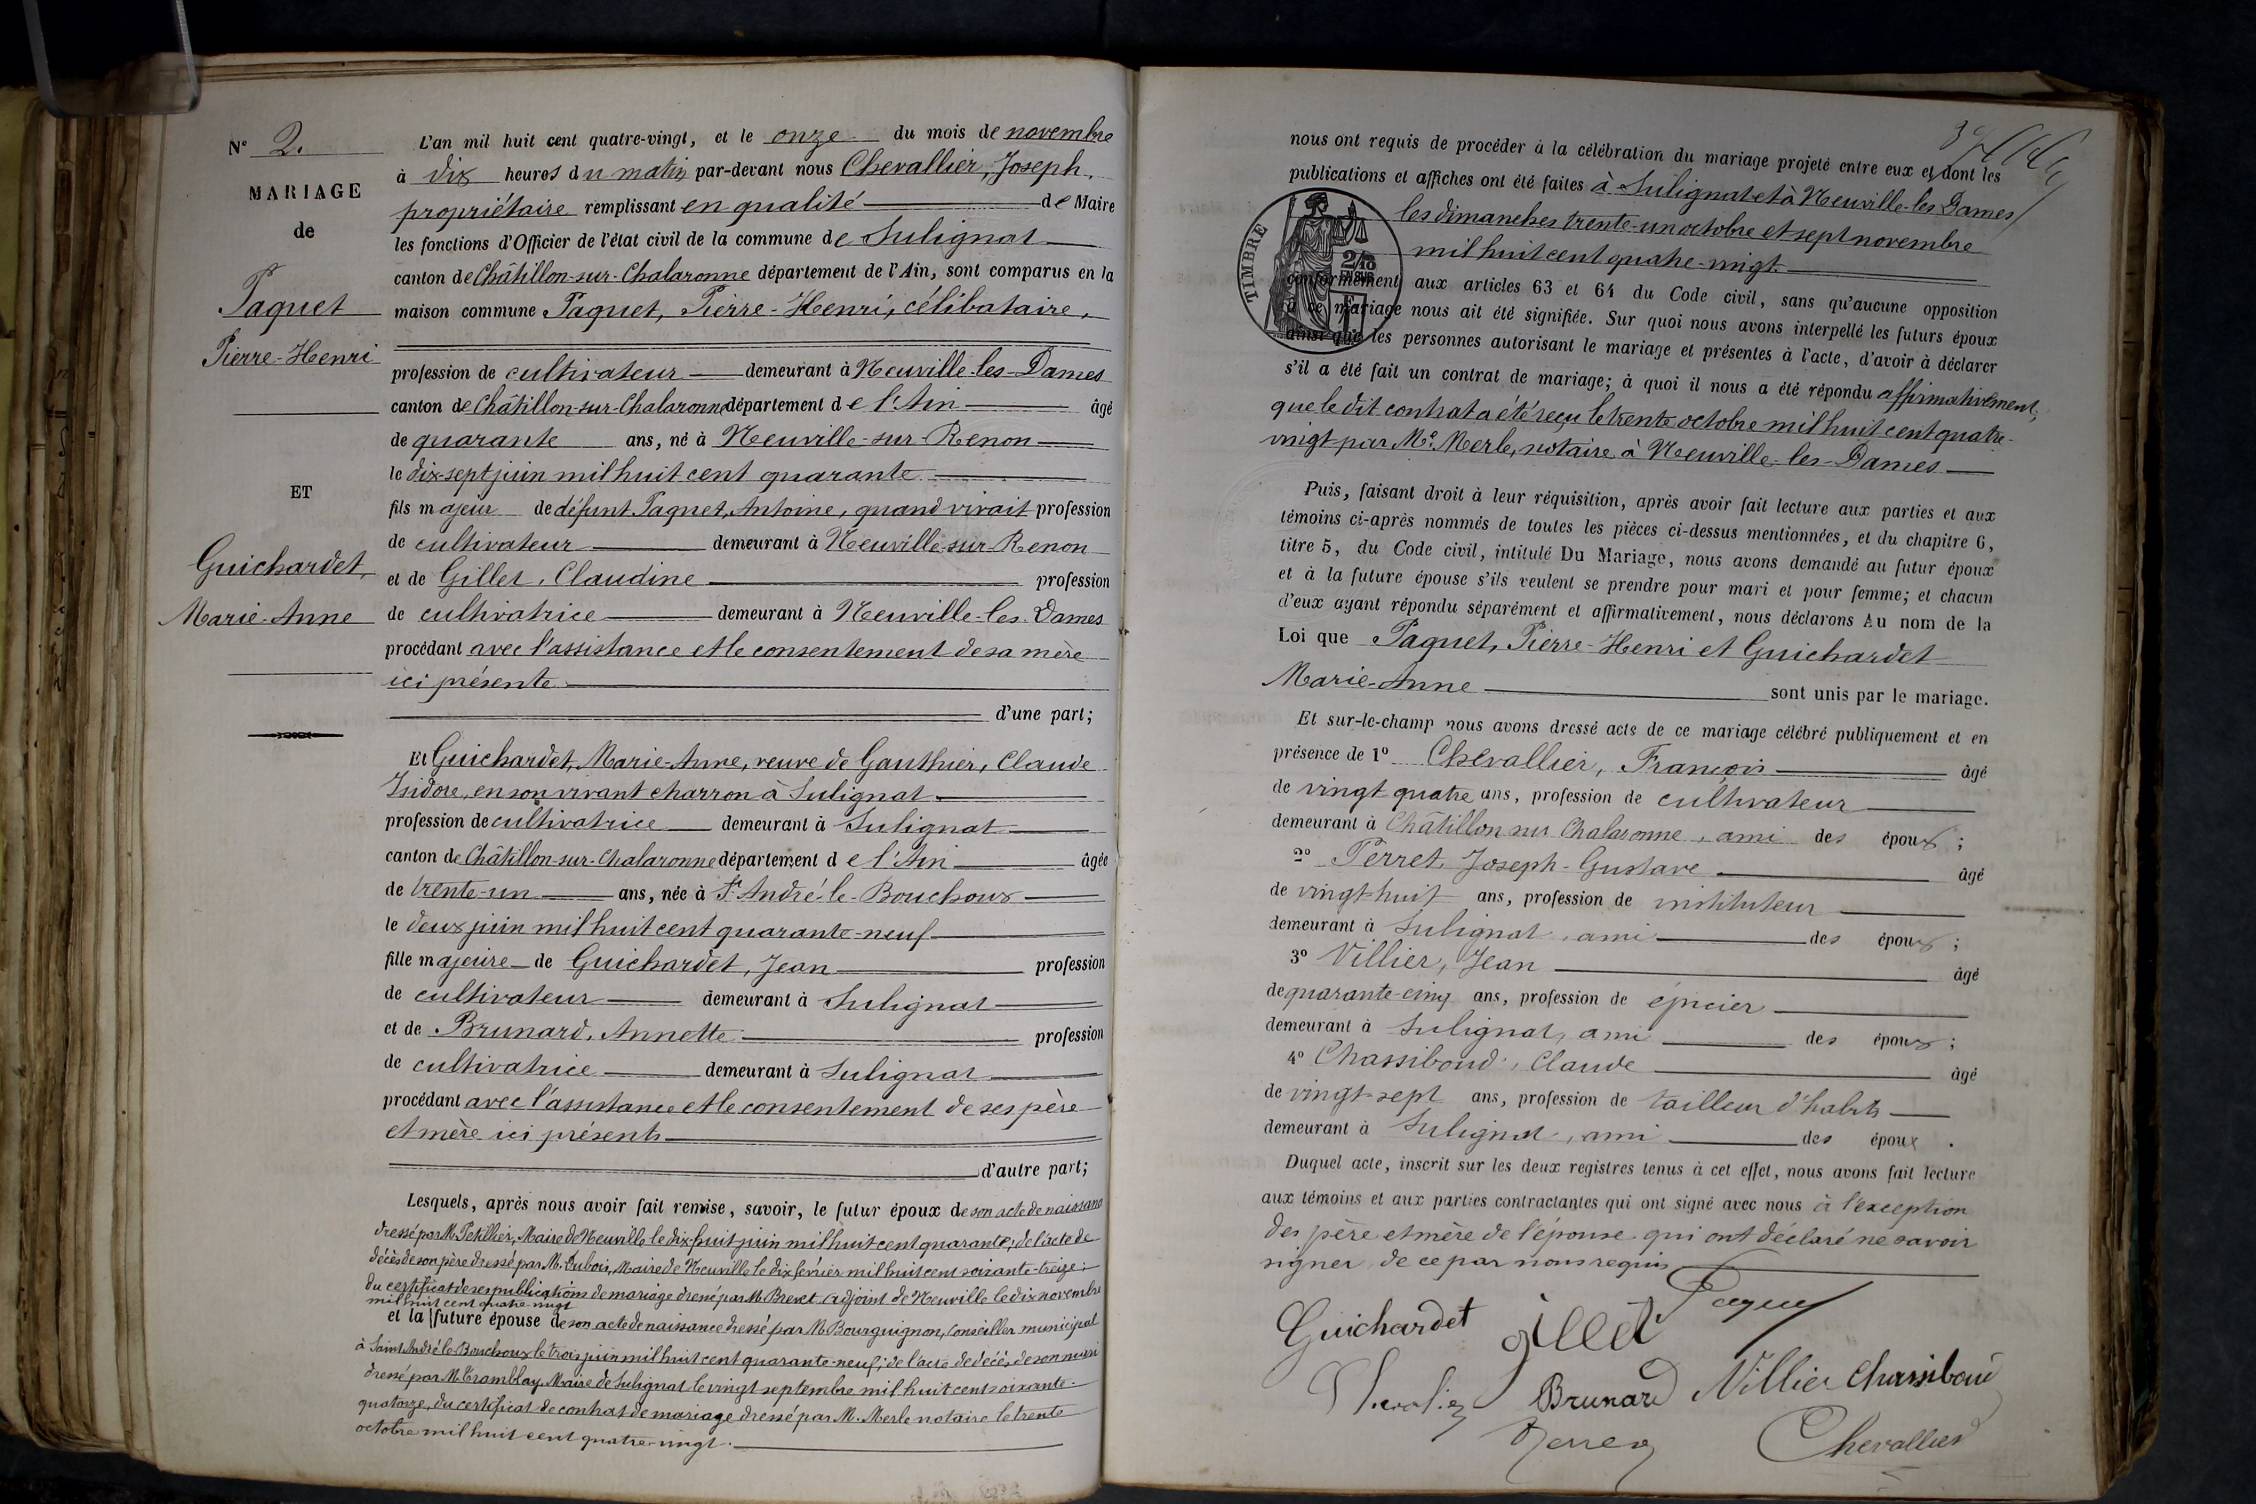 N° 2.
MARIAGE
de
Paquet
Pierre-Henri
ET
Guichardet,
Marie-Anne
L'an mil huit cent quatre-vingt, et le onze du mois de novembre
à dix heures du matin par-devant nous Chevallier, Joseph,
propriétaire remplissant en qualité de Maire
les fonctions d'Officier de l'état civil de la commune de Sulignat
canton de Châtillon-sur-Chalaronne département de l'Ain, sont comparus en la
maison commune Paquet, Pierre-Henri, célibataire,
profession de cultivateur demeurant à Neuville-les-Dames
canton de Châtillon-sur-Chalaronne département de l'Ain âgé
de quarante ans, né à Neuville-sur-Renon
le dix-sept juin mil huit cent quarante
fils majeur de défunt Paquet, Antoine, quand vivait profession
de cultivateur demeurant à Neuville-sur-Renon
et de Gillet, Claudine profession
de cultivatrice demeurant à Neuville-les-Dames
procédant avec l'assistance et le consentement de sa mère
ici présente
d'une part;
Et Guichardet, Marie-Anne, veuve de Gauthier, Claude
Isidore, en son vivant charron à Sulignat
profession de cultivatrice demeurant à Sulignat
canton de Châtillon-sur-Chalaronne département de l'Ain âgée
de trente-un ans, née à St André-le-Bouchoux
le deux juin mil huit cent quarante-neuf
fille majeure de Guichardet, Jean profession
de cultivateur demeurant à Sulignat
et de Brunard, Annette profession
de cultivatrice demeurant à Sulignat
procédant avec l'assistance et le consentement de ses père
et mère ici présents
d'autre part;
Lesquels, après nous avoir fait remise, savoir, le futur époux de son acte de naissance
dressé par M. Petillier, Maire de Neuville le dix-huit juin mil huit cent quarante; de l'acte de
décès de son père dressé par M. Dubois, Maire de Neuville le dix février mil huit cent soixante-treize;
du certificat de ses publications de mariage dressé par M. Brevet adjoint de Neuville le dix novembre
mil huit cent quatre-vingt
et la future épouse de son acte de naissance dressé par M. Bourguignon, Conseiller municipal
à Saint André le Bouchoux le trois juin mil huit cent quarante-neuf; de l'acte de décès de son mari
dressé par M. Tramblay Maire de Sulignat le vingt septembre mil huit cent soixante-
quatorze, du certificat de contrat de mariage dressé par M. Merle notaire le trente
octobre mil huit cent quatre-vingt.
nous ont requis de procéder à la célébration du mariage projeté entre eux et dont les
publications et affiches ont été faites à Sulignat et à Neuville-les-Dames
les dimanches trente-un octobre et sept novembre
mil huit cent quatre-vingt
TIMBRE
conformément aux articles 63 et 64 du Code civil, sans qu'aucune opposition
à ce mariage nous ait été signifiée. Sur quoi nous avons interpellé les futurs époux
ainsi que les personnes autorisant le mariage et présentes à l'acte, d'avoir à déclarer
s'il a été fait un contrat de mariage; à quoi il nous a été répondu affirmativement,
que le dit contrat a été reçu le trente octobre mil huit cent quatre-
vingt par Me. Merle, notaire à Neuville-les-Dames
Puis, faisant droit à leur réquisition, après avoir fait lecture aux parties et aux
témoins ci-après nommés de toutes les pièces ci-dessus mentionnées, et du chapitre 6,
titre 5, du Code civil, intitulé Du Mariage, nous avons demandé au futur époux
et à la future épouse s'ils veulent se prendre pour mari et pour femme; et chacun
d'eux ayant répondu séparément et affirmativement, nous déclarons Au nom de la
Loi que Paquet, Pierre-Henri et Guichardet
Marie-Anne sont unis par le mariage.
Et sur-le-champ nous avons dressé acte de ce mariage célébré publiquement et en
présence de 1° Chevallier, François âgé
de vingt quatre ans, profession de cultivateur
demeurant à Châtillon sur Chalaronne, ami des époux;
2° Perret, Joseph-Gustave âgé
de vingt-huit ans, profession de instituteur
demeurant à Sulignat, ami des époux;
3° Villier, Jean âgé
de quarante-cinq ans, profession de épicier
demeurant à Sulignat, ami des époux;
4° Chassiboud, Claude âgé
de vingt-sept ans, profession de tailleur d'habits
demeurant à Sulignat, ami des époux.
Duquel acte, inscrit sur les deux registres tenus à cet effet, nous avons fait lecture
aux témoins et aux parties contractantes qui ont signé avec nous à l'exception
des père et mère de l'épouse qui ont déclaré ne savoir
signer, de ce par nous requis
Paquet
Guichardet Gillet
Chevalier Brunard Villier Chassiboud
Perret Chevallier